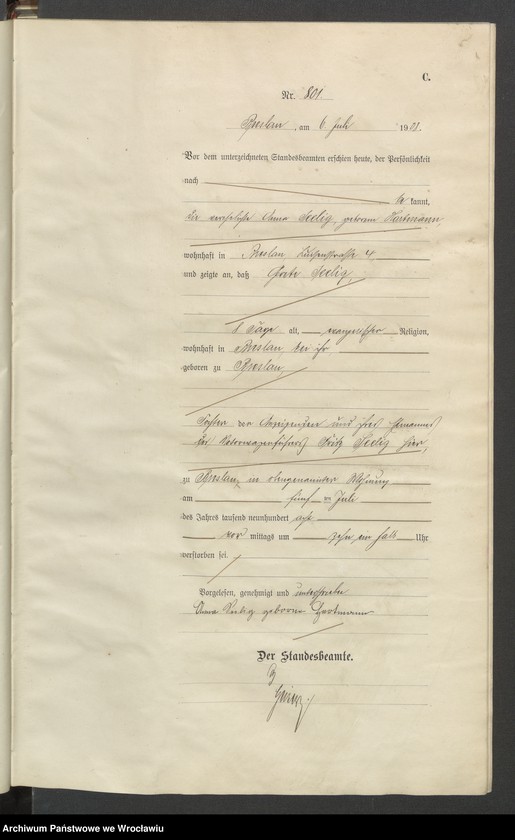 C.
Nr. 801
Breslau, am 6. Juli 1908.
Vor dem unterzeichneten Standesbeamten erschien heute, der Persönlichkeit
nach
be kannt,
die verehelichte Anna Seelig, geborene Hartmann,
wohnhaft in Breslau, 4,
und zeigte an, daß Grete Seelig,
8 Tage alt, evangelischer Religion,
wohnhaft in Breslau, bei ihr,
geboren zu Breslau,
Tochter der Anzeigenden und ihres Ehemannes
des Motorwagenführers Fritz Seelig hier,
zu Breslau, in obengenannter Wohnung
am fünften Juli
des Jahres tausend neunhundert acht
vor mittags um zehn ein halb Uhr
verstorben sei.
Vorgelesen, genehmigt und unterschrieben
Anna Seelig geborene Hartmann
Der Standesbeamte.
Archiwum Państwowe we Wrocławiu